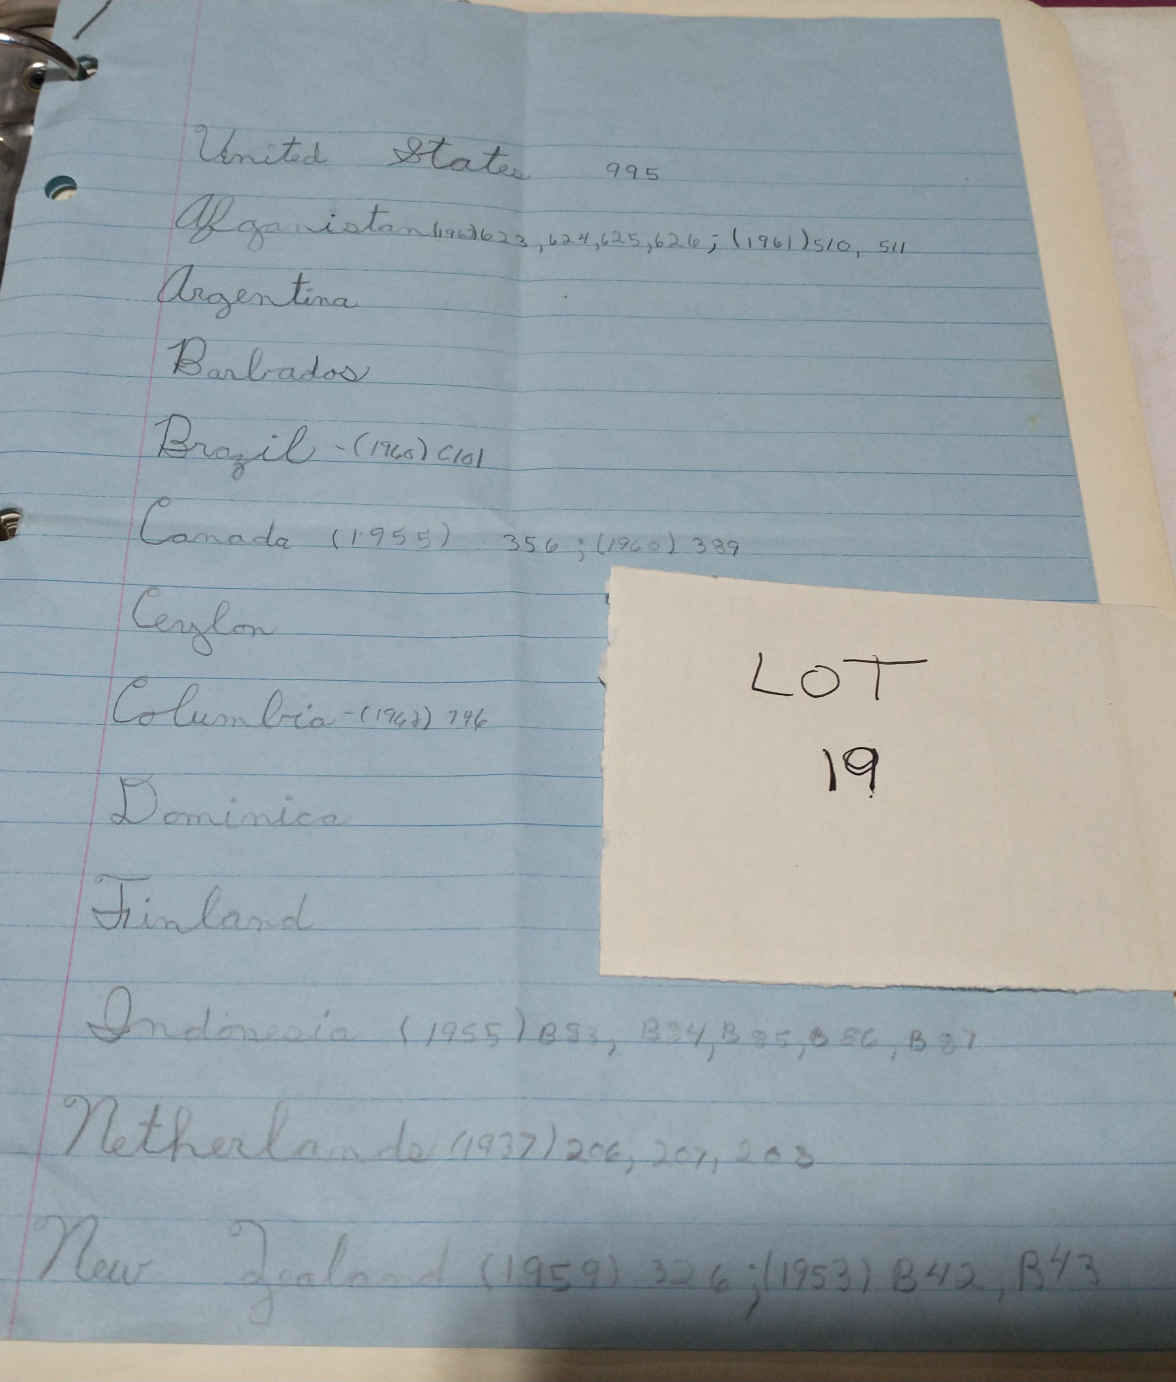 United States 995
Afganistan (1962) 623, 624, 625, 626; (1961) 510, 511
Argentina
Barbados
Brazil - (1960) C101
Canada (1955) 356; (1960) 389
Ceylon
Columbia - (1962) 746
Dominica
Finland
Indonesia (1955) B83, B84, B85, B86, B87
Netherlands (1937) 206, 207, 208
New Zealand (1959) 326; (1953) B42, B43
LOT
19